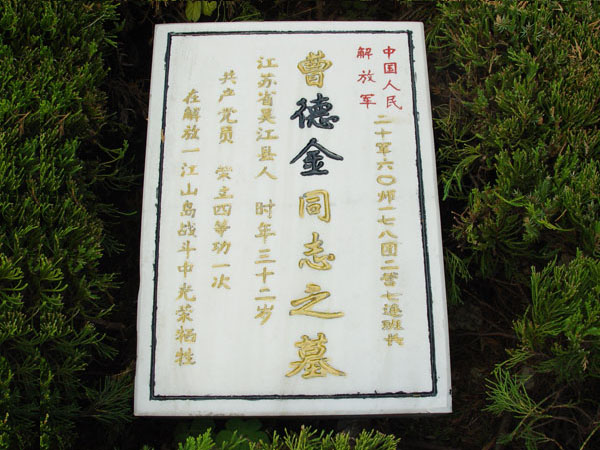 中国人民
解放军
二十军六〇师一七八团二营七连班长
曹德金同志之墓
江苏省吴江县人 时年三十二岁
共产党员 荣立四等功一次
在解放一江山岛战斗中光荣牺牲